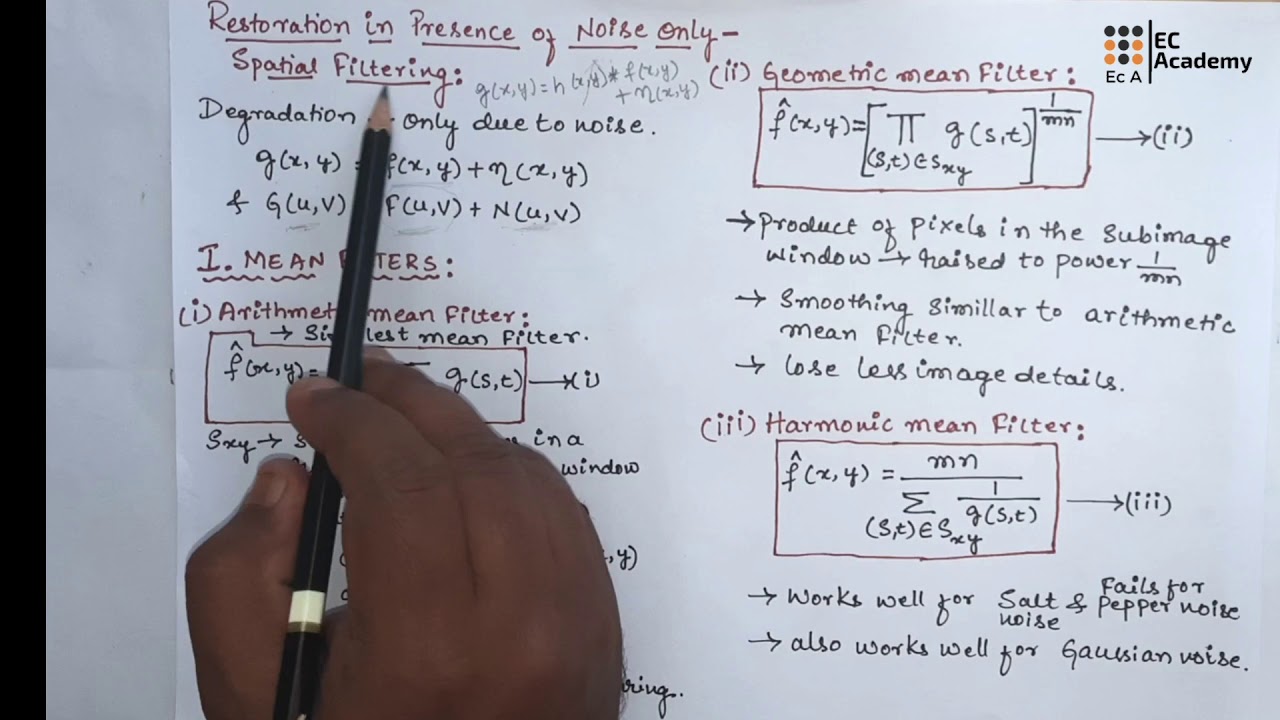 Restoration in Presence of Noise Only-
Spatial Filtering:
g(x,y) = h(x,y) * f(x,y)
+ η(x,y)
Degradation only due to noise.
g(x, y) = f(x, y) + η(x, y)
& G(u,v) F(u,v) + N(u,v)
I. MEAN FILTERS:
(i) Arithmetic mean Filter:
→ Simplest mean Filter.
f̂(x,y) = g(s,t) → (i)
Sxy → in a
window
y)
ring.
(ii) Geometric mean Filter:
f̂(x,y) = [ ∏ g(s,t) ] 1/mn → (ii)
(s,t) ∈ Sxy
→ Product of pixels in the subimage
window → raised to power 1/mn
→ Smoothing simillar to arithmetic
mean filter.
→ lose less image details.
(iii) Harmonic mean Filter:
f̂(x,y) = mn / Σ 1/g(s,t) → (iii)
(s,t) ∈ Sxy
→ Works well for Salt & Fails for
noise Pepper noise
→ also works well for Gaussian noise.
EC
Academy
Ec A